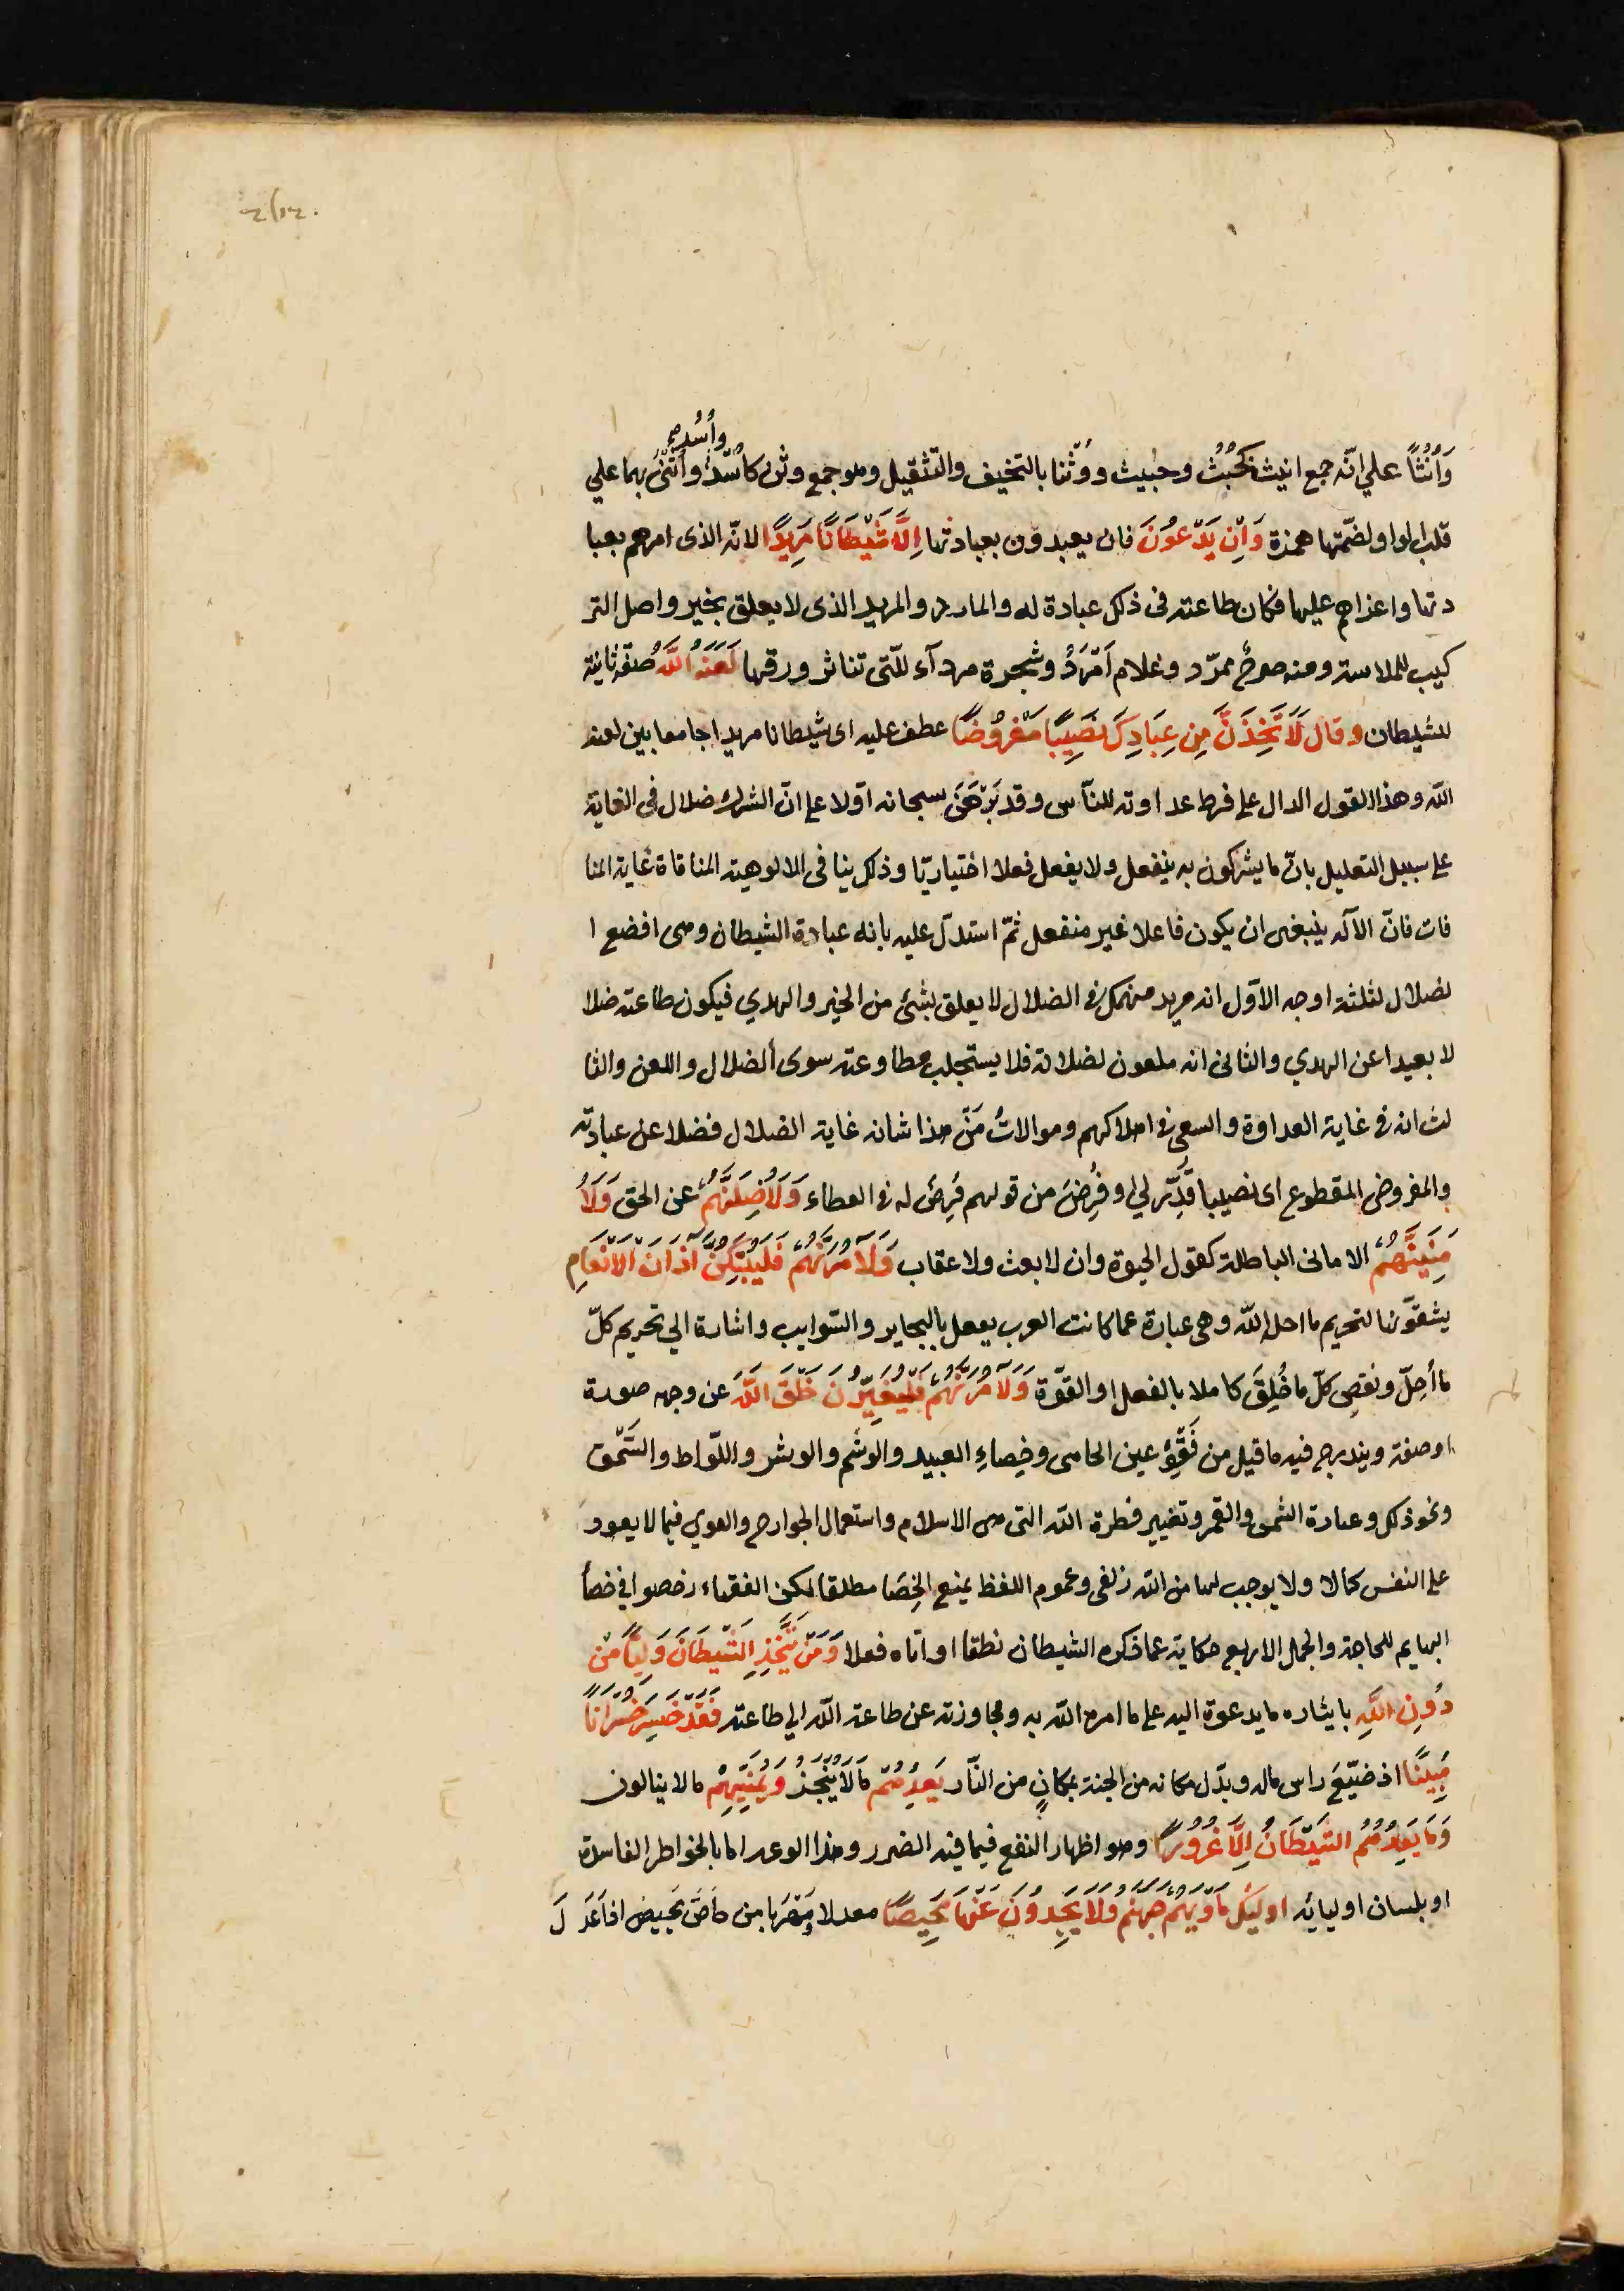 وأُسُد صح
وَأُنُثًا علي انّه جمع انيث كخُبُث وخبيث ووُثْنا بالتخفيف والتّثقيل وهو جمع وثن كاسُد واُثُن بهما علي
قلب الواو لضمّتها همزة وَاِنْ يَدْعُونَ فان يعبدون بعبادتها اِلَّا شَيْطَانًا مَرِيدًا لانّه الذى امرهم بعبا
دتها واغراهم عليها فكان طاعته فى ذلك عبادة له والمارد والمريد الذى لا يعلق بخير واصل التر
كيب للملاسة ومنه صرحٌ ممرّد وغلام اَمْرَدُ وشجرة مردآء للّتى تناثر ورقها لَعَنَهُ اللَّهُ صفة ثانية
للشيطان وقال لَاَتَّخِذَنَّ مِن عِبَادِكَ نَصِيبًا مَفْرُوضًا عطف عليه اى شيطانا مريدا جامعا بين لعنة
اللّه وهذا القول الدال على فرط عداوته للنّاس وقد بَرْهَنَ سبحانه اوّلا على انّ الشرك ضلال فى الغاية
على سبيل التعليل بانّ ما يشركون به ينفعل ولا يفعل فعلا اختياريّا وذلك ينافى الالوهية المنافاة غاية المنا
فات فانّ الآله ينبغى ان يكون فاعلا غير منفعل ثمّ استدلّ عليه بانه عبادة الشيطان وهى افضع ا
لضلال لثلثة اوجه الاوّل انه مريد منهمك فى الضلال لا يعلق بشئ من الخير والهدي فيكون طاعته ضلا
لا بعيدا عن الهدي والثانى انه ملعون لضلاته فلا يستجلب مطاوعته سوى الضلال واللعن والثا
لث انه فى غاية العداوة والسعى فى اهلاكهم وموالاتُ مَنْ هذا شانه غاية الضلال فضلا عن عبادته
والمفروض المقطوع اى نصيبا قُدِّر لي او فُرِضَ من قولهم فُرِضَ له فى العطاء وَلَاُضِلَّنَّهُمْ عن الحق وَلَاُ
مَنِّيَنَّهُمْ الامانى الباطلة كقول الحيوة وان لا بعث ولا عقاب وَلَآمُرَنَّهُمْ فَلَيُبَتِّكُنَّ اٰذَانَ الْاَنْعَامِ
يشقّونها لتحريم ما احل اللّه وهى عبارة عما كانت العرب يفعل بالبحاير والسّوايب واشارة الي تحريم كلّ
ما أحِلّ ونقص كلّ ما خُلِقَ كاملا بالفعل او القوّة وَلَآمُرَنَّهُمْ فَلَيُغَيِّرُنَ خَلْقَ اللَّهِ عن وجهه صورة
او صفة ويندرج فيه ما قيل من فَقْؤِ عين الحامى وخِصاءِ العبيد والوشم والوشر واللّواط والسَّحْق
ونحو ذلك وعبادة الشمس والقمر وتغيير فطرة اللّه التى هى الاسلام واستعمال الجوارح والقوي فيما لا يعود
على النفس كمالا ولا يوجب لها من اللّه زلفى وعموم اللفظ يمنع الخِصَا مطلقا لكن الفقهاء رخصوا في خصأ
البهايم للحاجة والجمل الاربع حكاية عما ذكره الشيطان نطقا او اتاه فعلا وَمَنْ يَتَّخِذِ الشَّيْطَانَ وَلِيًّا مِنْ
دُونِ اللَّهِ بايثاره ما يدعوة اليه على ما امره اللّه به ومجاوزته عن طاعة اللّه الي طاعته فَقَدْ خَسِرَ خُسْرَانًا
مُبِينًا اذ ضيّعَ راس ماله وبدّل مكانه من الجنة بمكانٍ من النّار يَعِدُهُمْ ما لا ينجزُ وَيُمَنِّيهِمْ ما لا ينالون
وَمَا يَعِدُهُمُ الشَّيْطَانُ اِلَّا غُرُورًا وهو اظهار النفع فيما فيه الضرر وهذا الوعد اما بالخواطر الفاسدة
او بلسان اوليائه اوليٓك مَأْوٰيهُمْ جَهَنَّمُ وَلَا يَجِدُونَ عَنْهَا مَحِيصًا معدلا ومَهْرَبا من حاصَ يَحيصُ اذا عَدَلَ